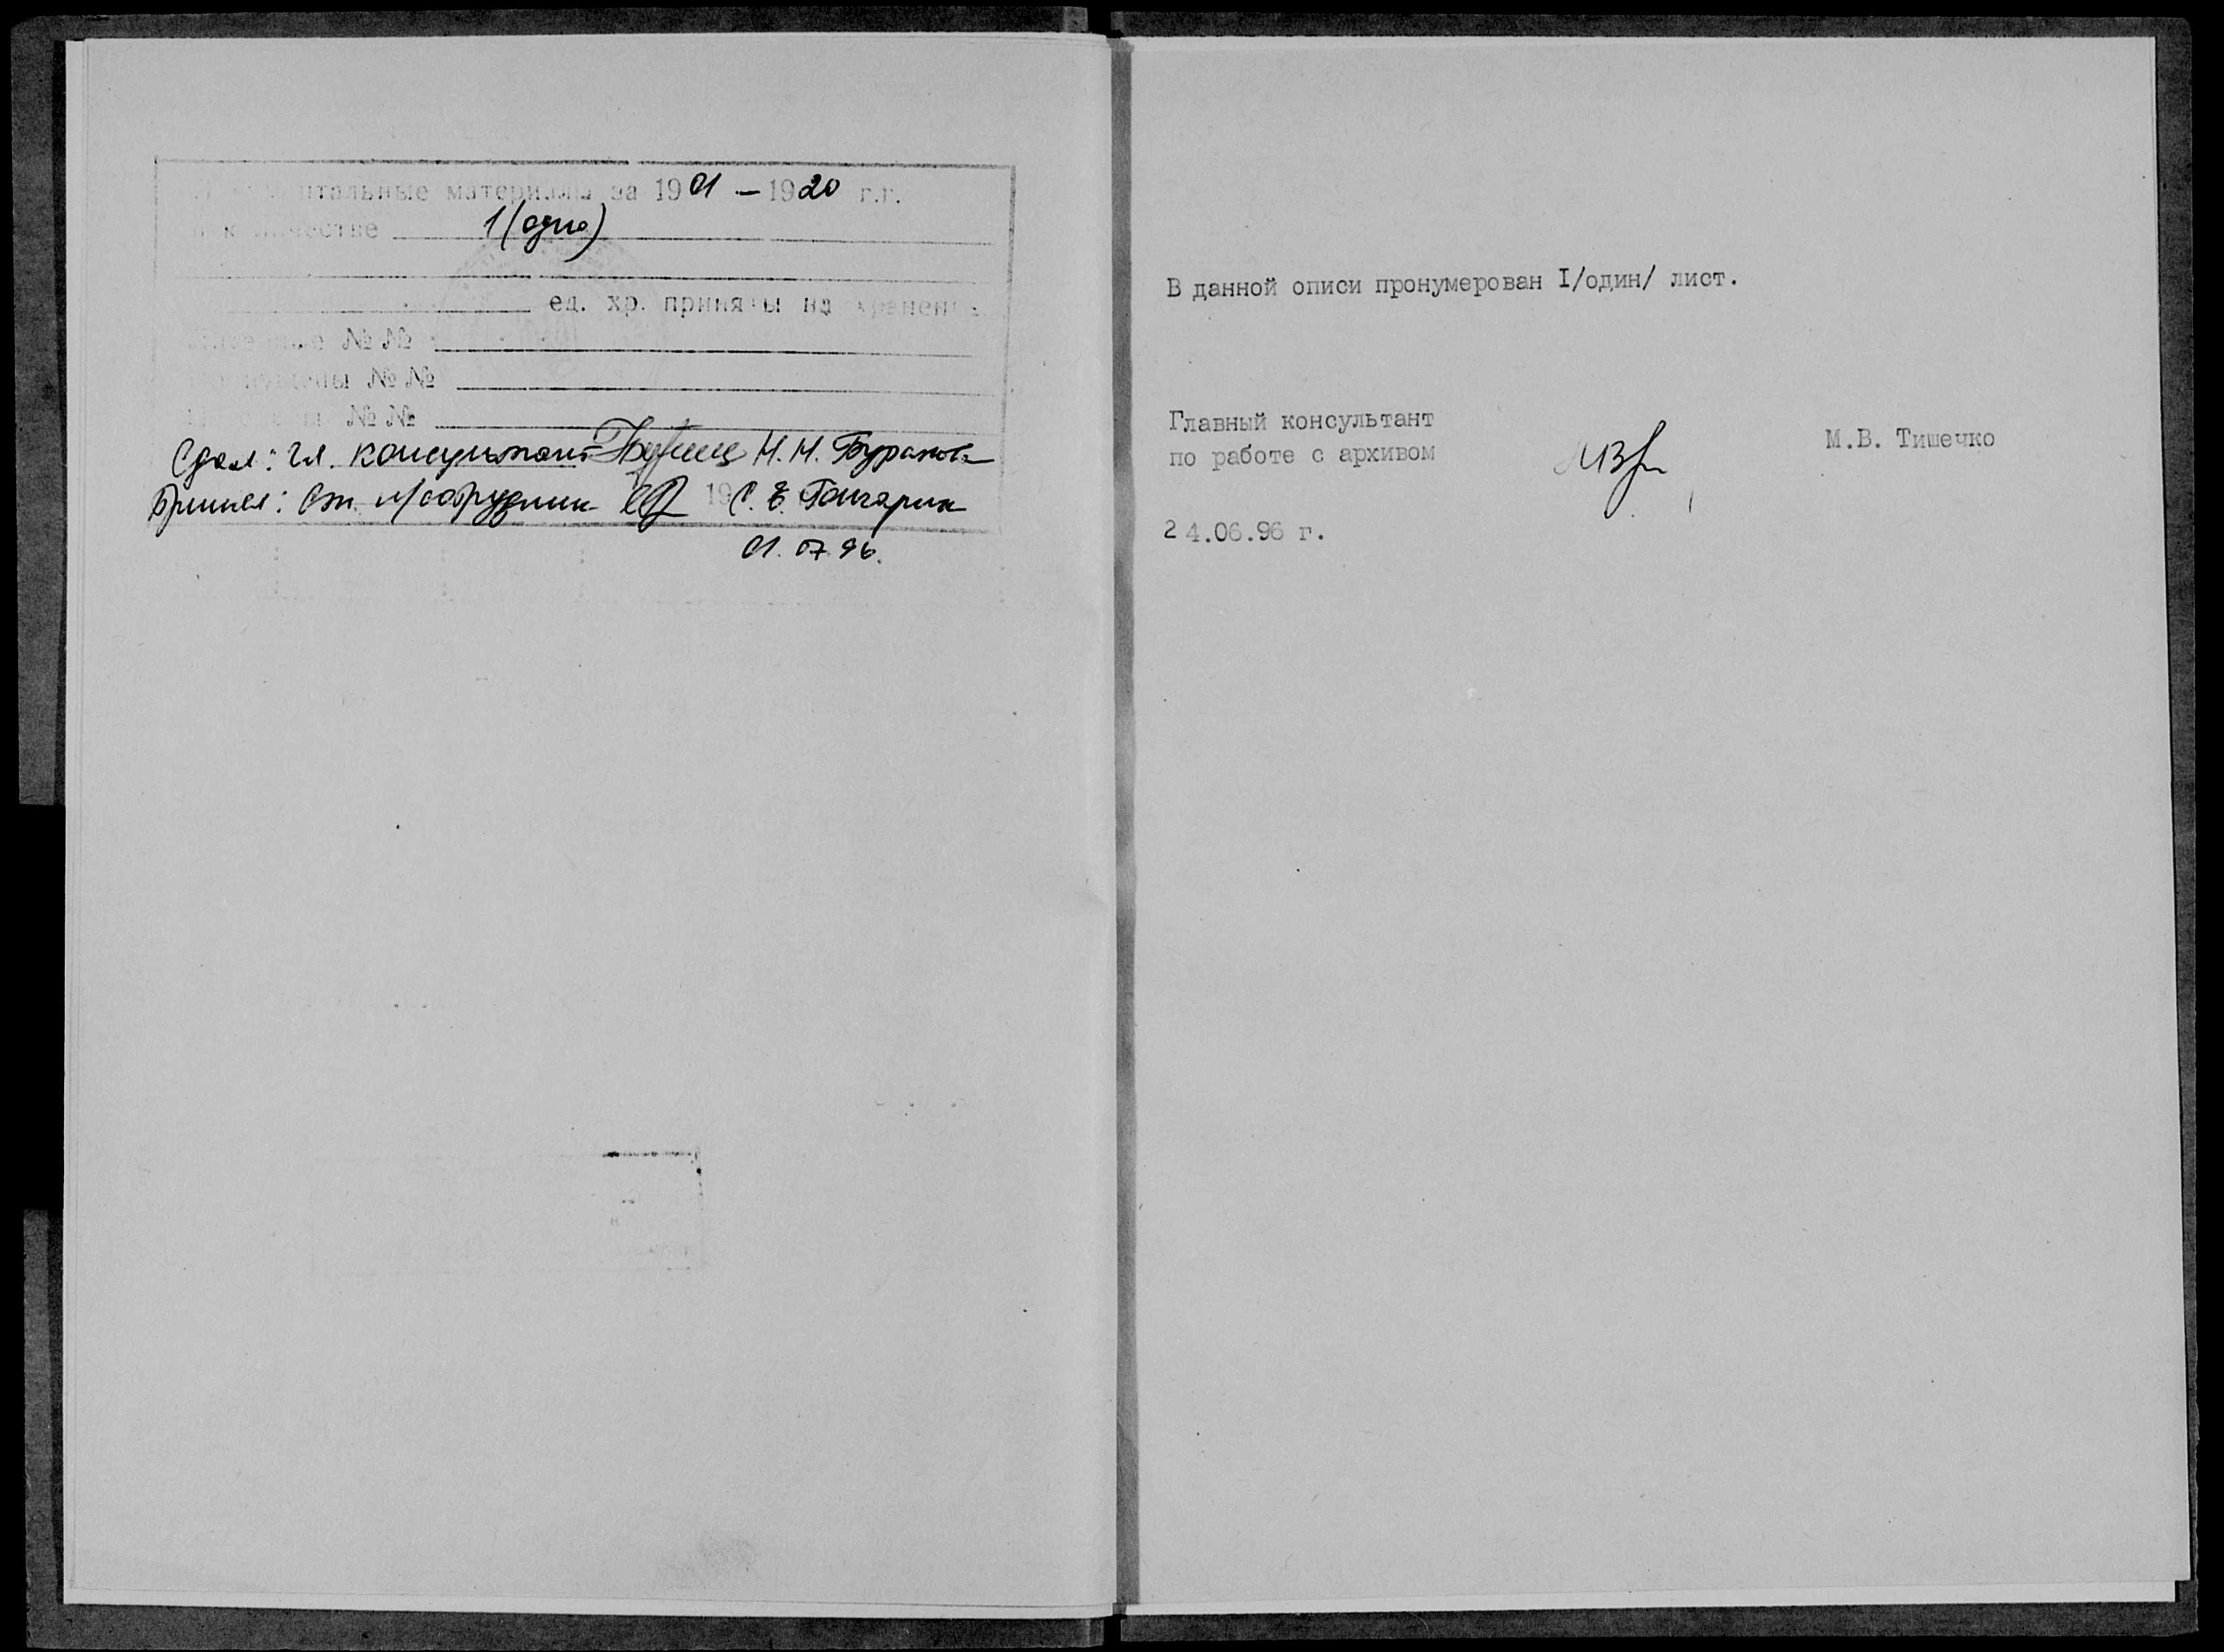 материалы за 1901 – 1920 г.г.
1 (одна)
ед. хр. приняты на хранен
№ №
№ №
№ №
Сдал: гл. консультант Н. Н. Буракова
Принял: Ст. н/сотрудник 19 С. Е. Гончарик
01.07.96.
В данной описи пронумерован I/один/ лист.
Главный консультант
по работе с архивом М.В. Тишечко
24.06.96 г.